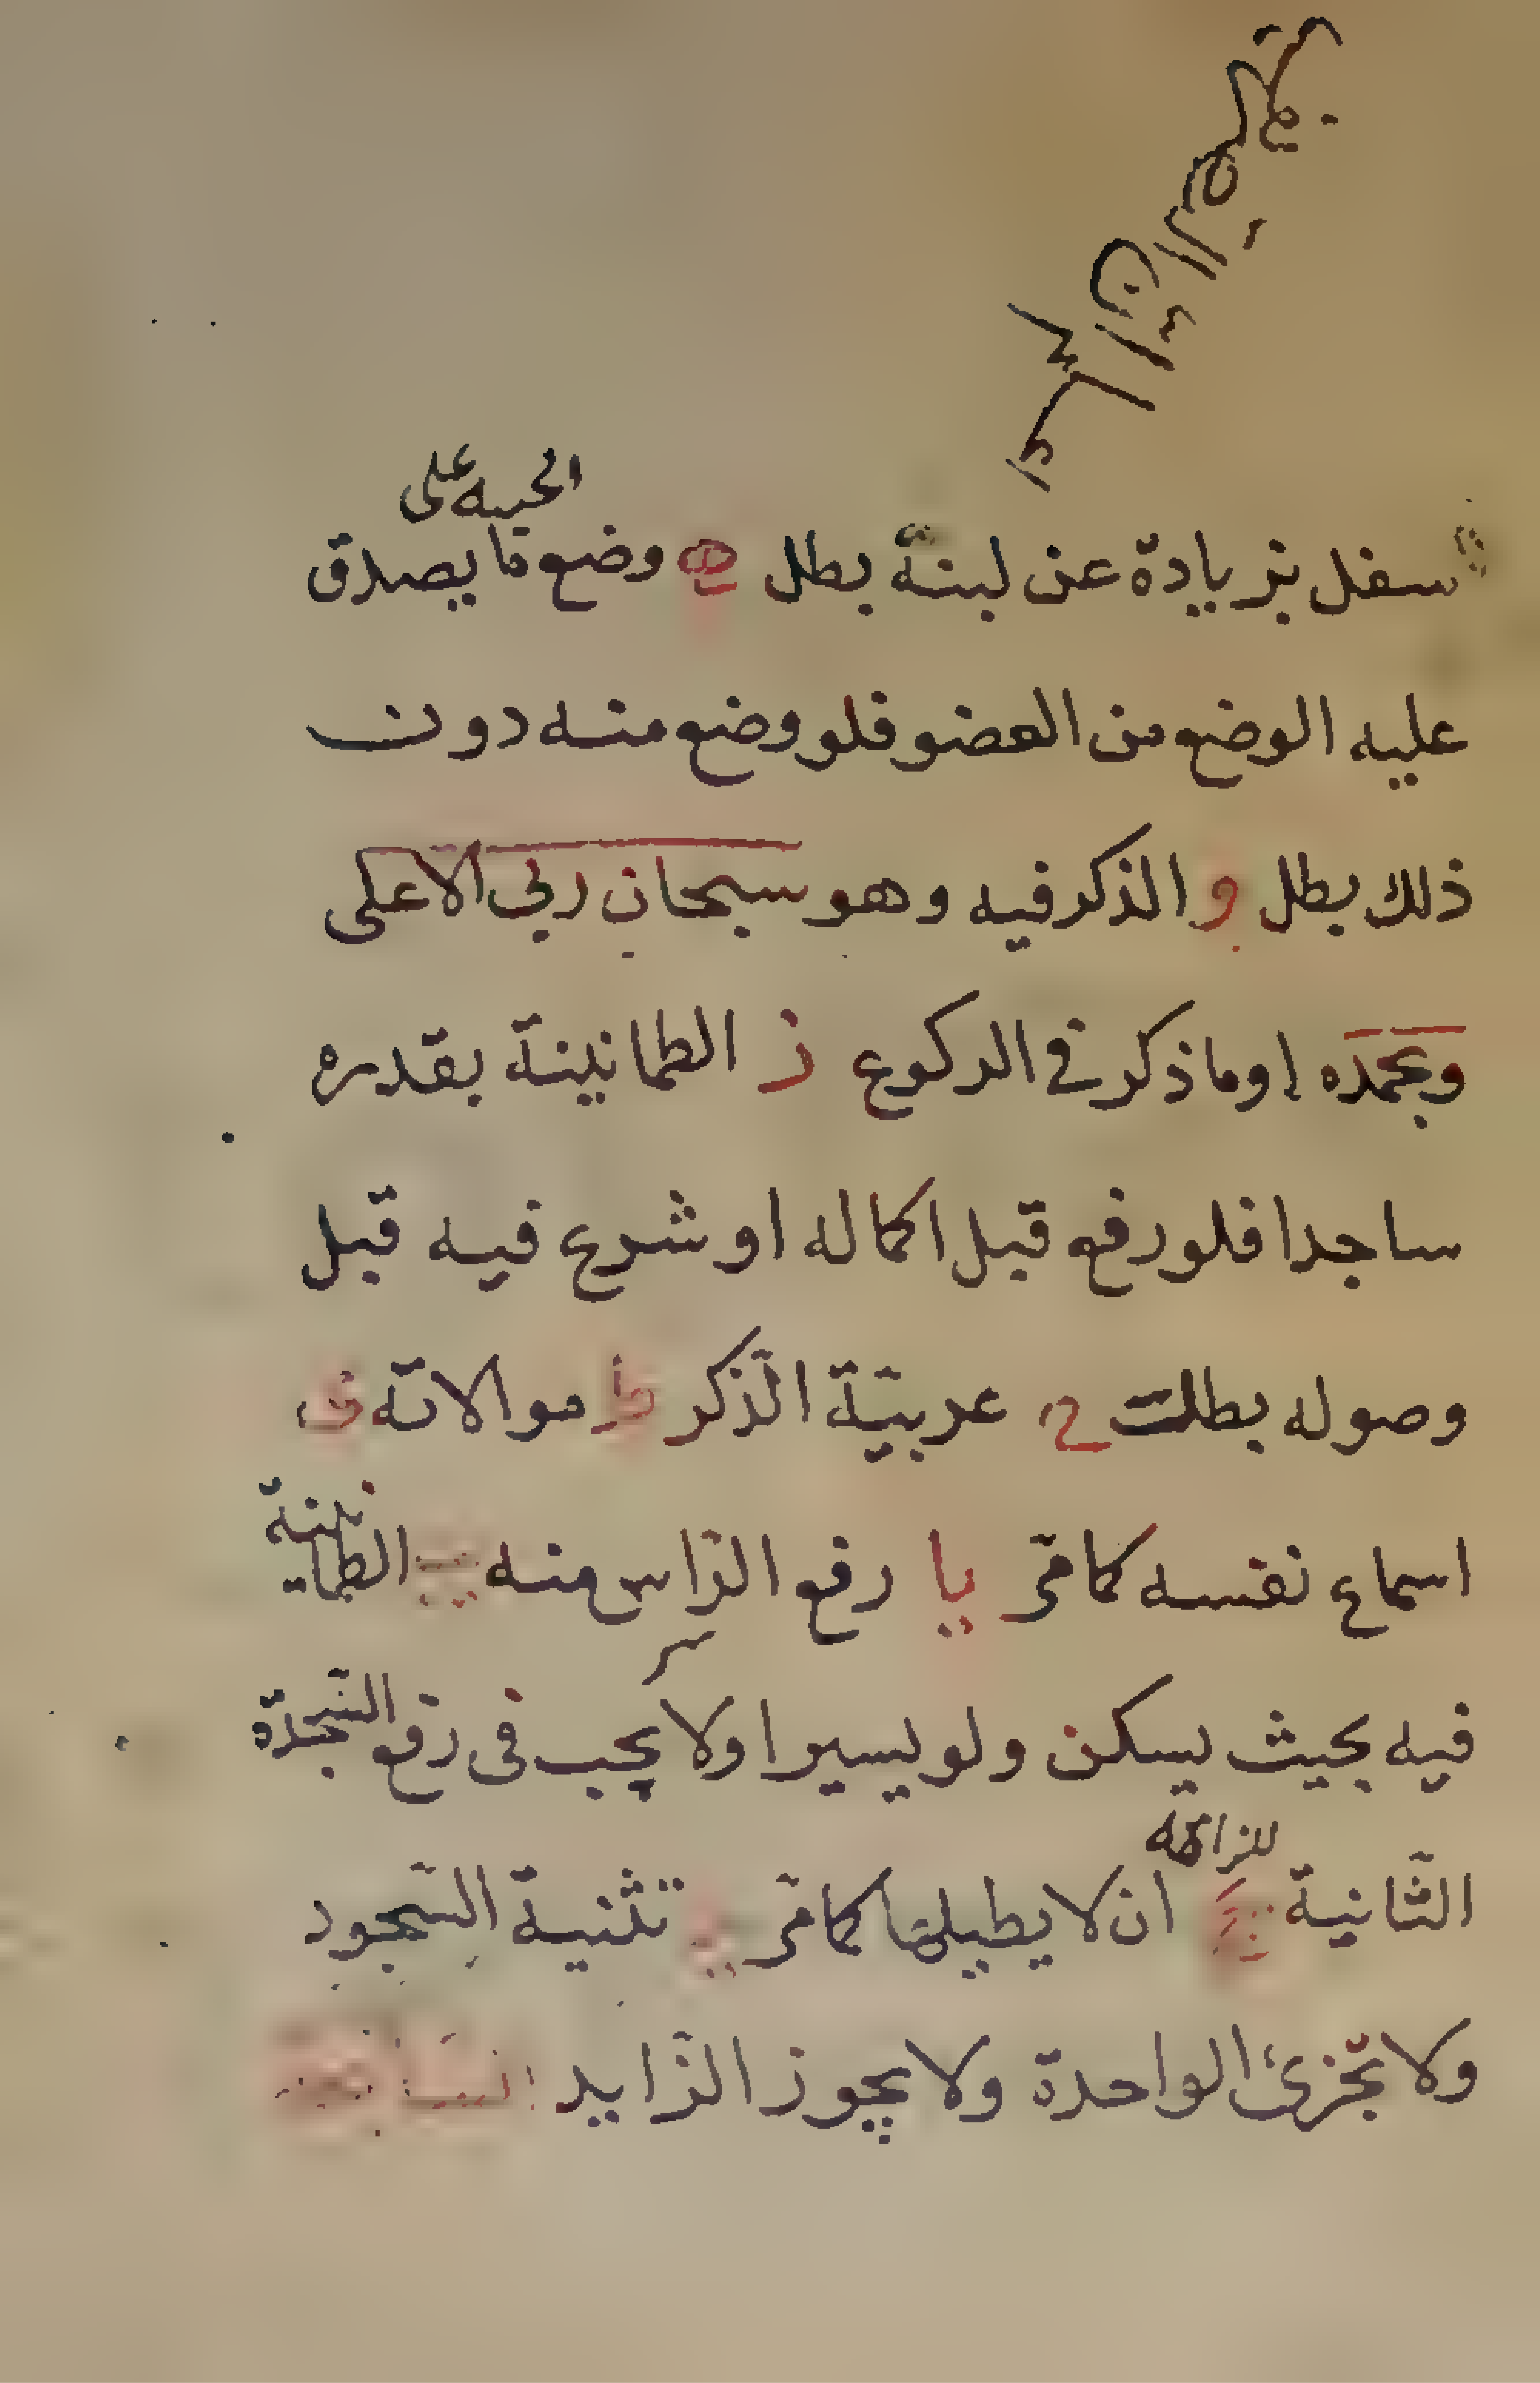 سفل بزيادة عن لبنة بطل ه وضع ما يصدق
على
عليه الوضع من العضو فلو وضع منه دون
ذلك بطل و الذكر فيه وهو سبحان ربي الاعلى
وبحمده اوما ذكر في الركوع ز الطمانينة بقدره
ساجدا فلو رفع قبل اكماله او شرع فيه قبل
وصوله بطلت ح عربيّة الذّكر ط موالاته ى
اسماع نفسه كما مرّ يا رفع الرّاس منه يب الطمانينة
فيه بحيث يسكن ولو يسيرا ولا يجب فى رفع السّجدة
الثّانية ان لا يطيلها كما مرّ تثنية السّجود
ولا تجزئ الواحدة ولا يجوز الزّايد